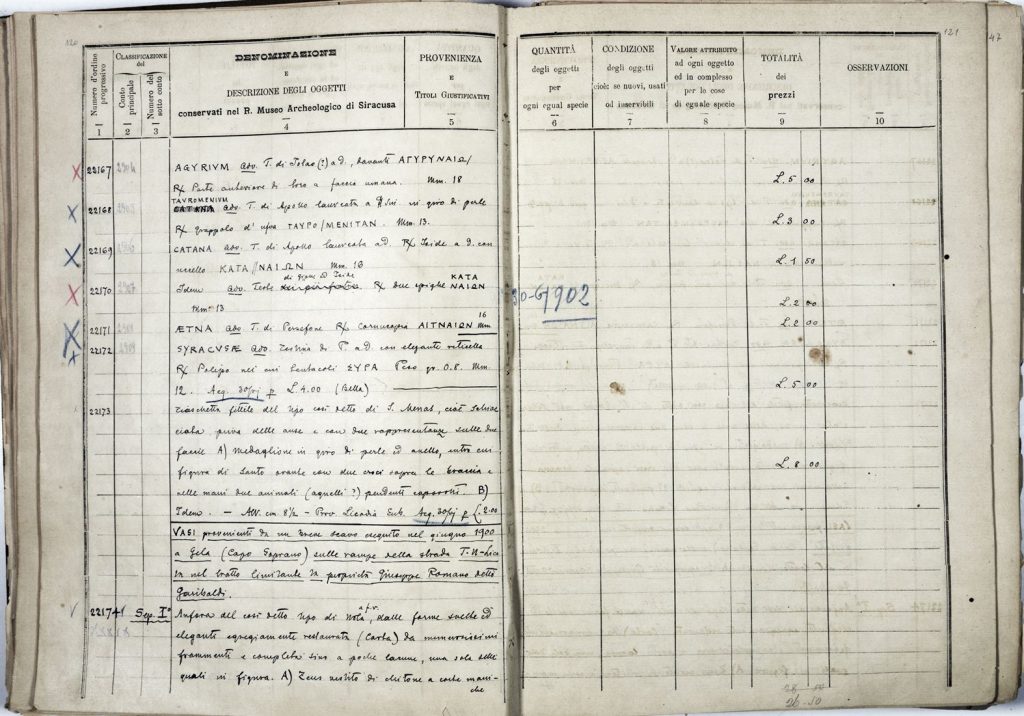 120
Numero d'ordine progressivo
CLASSIFICAZIONE del
Conto principale
Numero del sotto conto
DENOMINAZIONE
E
DESCRIZIONE DEGLI OGGETTI
conservati nel R. Museo Archeologico di Siracusa
PROVENIENZA
E
TITOLI GIUSTIFICATIVI
1 2 3 4 5
22167 AGYRIVM adv. T. di Iolao (?) a d., davanti ΑΓΥΡΥΝΑΙΩ/
R/ Parte anteriore di toro a faccia umana. Mm. 18
TAVROMENIVM
22168 CATANA adv. T. di Apollo laureata a in giro di perle
R/ grappolo d'uva ΤΑΥΡΟ/ΜΕΝΙΤΑΝ. Mm. 13.
22169 CATANA adv. T. di Apollo laureata a d. R/ Iside a d. con
ΚΑΤΑ//ΝΑΙΩΝ Mm. 16
di giove ed Iside ΚΑΤΑ
22170 Idem adv. Teste R/ due spighe ΝΑΙΩΝ
Mm. 13
16
22171 ÆTNA adv. T. di Persefone R/ Cornucopia ΑΙΤΝΑΙΩΝ Mm
22172 SYRACVSÆ adv. Testina di a d. con elegante reticella
R/ Polipo nei cui tentacoli ΣΥΡΑ Peso gr. 0.8. Mm.
12. Acq. p L. 4.00 (Bella)
22173 Fiaschetta fittile del tipo così detto di S. Menas, cioè
priva delle anse e con due rappresentanze sulle due
faccie A) Medaglione in giro di perle ed anello, entro cui
figura di Santo orante con due croci sopra le braccia e
nelle mani due animali (agnelli?) pendenti B)
Idem. — Alt. cm. 8½ — Prov. Licodia Eub. Acq. p L. 2.00
VASI provenienti da un breve scavo eseguito nel giugno 1900
a Gela (Capo Soprano) sulle rampe della strada T.N-Lica
ta nel tratto limitante la proprietà Giuseppe Romano detto
Garibaldi.
a f.r.
22174 Sep. I° Anfora del così detto tipo di Nola, dalle forme svelte ed
eleganti egregiamente restaurata (Carta) da numerosissimi
frammenti e completa sino a poche lacune, una sola delle
quali in figura. A) Zeus vestito di chitone a corte mani-
che.
121
47
QUANTITÀ
degli oggetti
per
ogni egual specie
CONDIZIONE
degli oggetti
cioè: se nuovi, usati
od inservibili
VALORE ATTRIBUITO
ad ogni oggetto
ed in complesso
per le cose
di eguale specie
TOTALITÀ
dei
prezzi
OSSERVAZIONI
6 7 8 9 10
L. 5 00
L. 3 00
L. 1 50
30-6/902
L. 2 00
L. 2 00
L. 5 00
L. 8 00
26 50